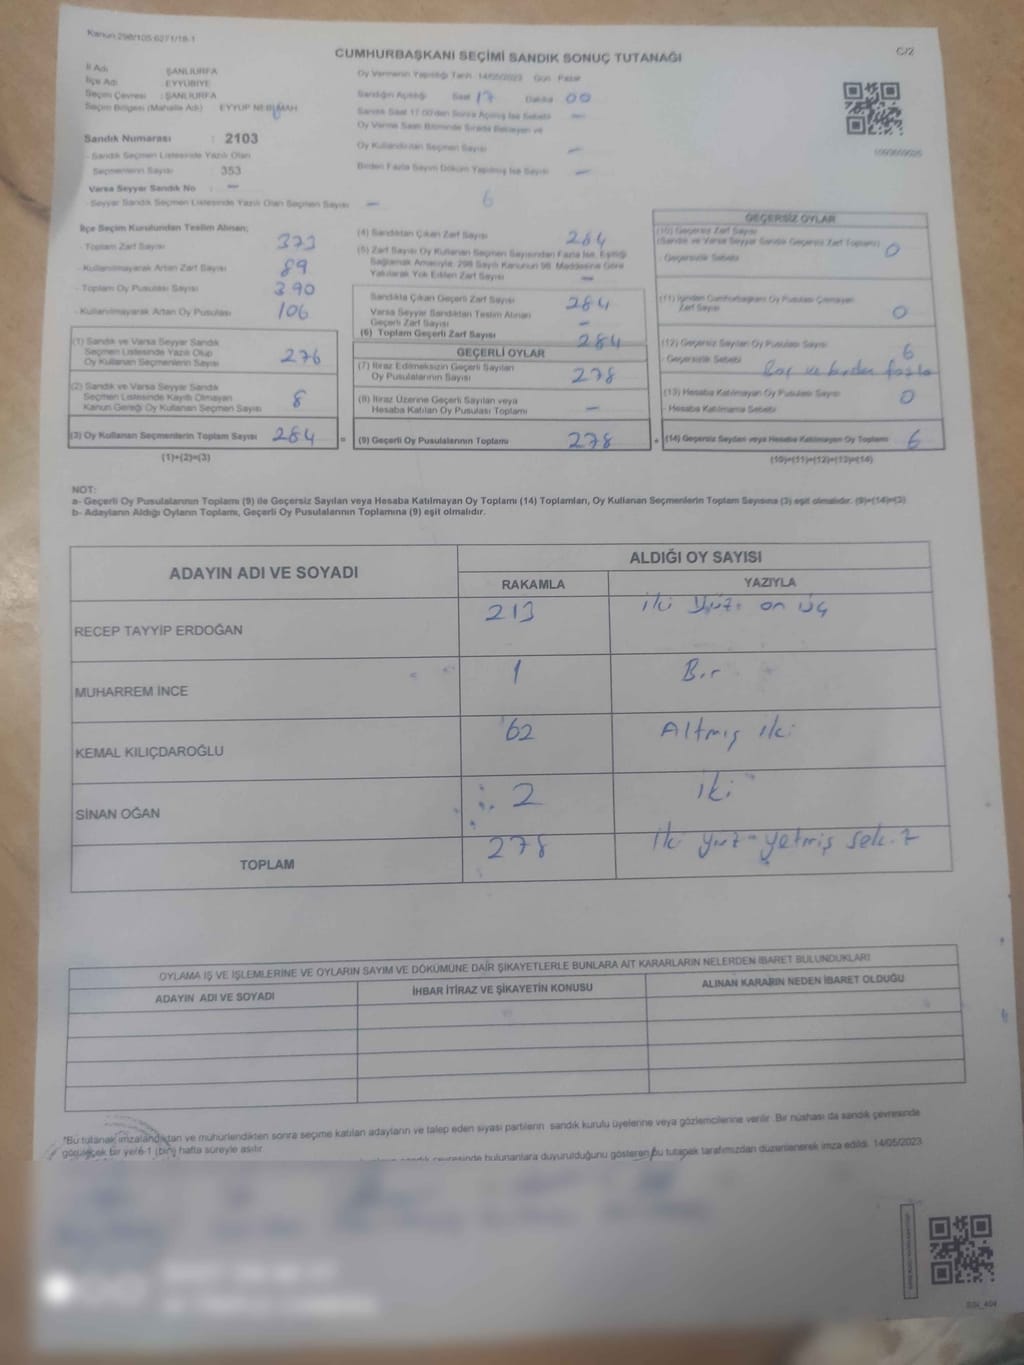 Kanun 298/105 6271/18-1
C/2
CUMHURBAŞKANI SEÇİMİ SANDIK SONUÇ TUTANAĞI
İl Adı : ŞANLIURFA
İlçe Adı : EYYÜBİYE
Seçim Çevresi : ŞANLIURFA
Seçim Bölgesi (Mahalle Adı) EYYUP NEBİ MAH
Oy Vermenin Yapıldığı Tarih 14/05/2023 Gün Pazar
Sandığın Açıldığı Saat 17 Dakika 00
Sandık Saat 17.00'den Sonra Açılmış İse Sebebi —
Oy Verme Saati Bitiminde Sırada Bekleyen ve
Oy Kullandırılan Seçmen Sayısı —
Birden Fazla Sayım Döküm Yapılmış İse Sayısı —
Sandık Numarası : 2103
- Sandık Seçmen Listesinde Yazılı Olan
Seçmenlerin Sayısı : 353
Varsa Seyyar Sandık No : —
- Seyyar Sandık Seçmen Listesinde Yazılı Olan Seçmen Sayısı — 6
İlçe Seçim Kurulundan Teslim Alınan;
- Toplam Zarf Sayısı 373
- Kullanılmayarak Artan Zarf Sayısı 89
- Toplam Oy Pusulası Sayısı 390
- Kullanılmayarak Artan Oy Pusulası 106
(1) Sandık ve Varsa Seyyar Sandık
Seçmen Listesinde Yazılı Olup
Oy Kullanan Seçmenlerin Sayısı 276
(2) Sandık ve Varsa Seyyar Sandık
Seçmen Listesinde Kayıtlı Olmayan
Kanun Gereği Oy Kullanan Seçmen Sayısı 8
(3) Oy Kullanan Seçmenlerin Toplam Sayısı 284 =
(1)+(2)=(3)
(4) Sandıktan Çıkan Zarf Sayısı 284
(5) Zarf Sayısı Oy Kullanan Seçmen Sayısından Fazla İse, Eşitliği
Sağlamak Amacıyla, 298 Sayılı Kanunun 98. Maddesine Göre
Yakılarak Yok Edilen Zarf Sayısı —
Sandıkta Çıkan Geçerli Zarf Sayısı 284
Varsa Seyyar Sandıktan Teslim Alınan
Geçerli Zarf Sayısı —
(6) Toplam Geçerli Zarf Sayısı 284
GEÇERLİ OYLAR
(7) İtiraz Edilmeksizin Geçerli Sayılan
Oy Pusulalarının Sayısı 278
(8) İtiraz Üzerine Geçerli Sayılan veya
Hesaba Katılan Oy Pusulası Toplamı —
(9) Geçerli Oy Pusulalarının Toplamı 278 +
GEÇERSİZ OYLAR
(10) Geçersiz Zarf Sayısı
(Sandık ve Varsa Seyyar Sandık Geçersiz Zarf Toplamı) 0
- Geçersizlik Sebebi
(11) İçinden Cumhurbaşkanı Oy Pusulası Çıkmayan
Zarf Sayısı 0
(12) Geçersiz Sayılan Oy Pusulası Sayısı 6
- Geçersizlik Sebebi Boş ve birden fazla
(13) Hesaba Katılmayan Oy Pusulası Sayısı 0
- Hesaba Katılmama Sebebi
(14) Geçersiz Sayılan veya Hesaba Katılmayan Oy Toplamı 6
(10)+(11)+(12)+(13)=(14)
NOT:
a- Geçerli Oy Pusulalarının Toplamı (9) ile Geçersiz Sayılan veya Hesaba Katılmayan Oy Toplamı (14) Toplamları, Oy Kullanan Seçmenlerin Toplam Sayısına (3) eşit olmalıdır. (9)+(14)=(3)
b- Adayların Aldığı Oyların Toplamı, Geçerli Oy Pusulalarının Toplamına (9) eşit olmalıdır.
ADAYIN ADI VE SOYADI
ALDIĞI OY SAYISI
RAKAMLA YAZIYLA
RECEP TAYYİP ERDOĞAN 213 iki Yüz on üç
MUHARREM İNCE 1 Bir
KEMAL KILIÇDAROĞLU 62 Altmış iki
SİNAN OĞAN 2 iki
TOPLAM 278 iki yüz yetmiş sekiz
OYLAMA İŞ VE İŞLEMLERİNE VE OYLARIN SAYIM VE DÖKÜMÜNE DAİR ŞİKAYETLERLE BUNLARA AİT KARARLARIN NELERDEN İBARET BULUNDUKLARI
ADAYIN ADI VE SOYADI İHBAR İTİRAZ VE ŞİKAYETİN KONUSU ALINAN KARARIN NEDEN İBARET OLDUĞU
*Bu tutanak imzalandıktan ve mühürlendikten sonra seçime katılan adayların ve talep eden siyasi partilerin sandık kurulu üyelerine veya gözlemcilerine verilir. Bir nüshası da sandık çevresinde
görülecek bir yere 1 (bir) hafta süreyle asılır.
sandık çevresinde bulunanlara duyurulduğunu gösteren bu tutanak tarafımızdan düzenlenerek imza edildi. 14/05/2023